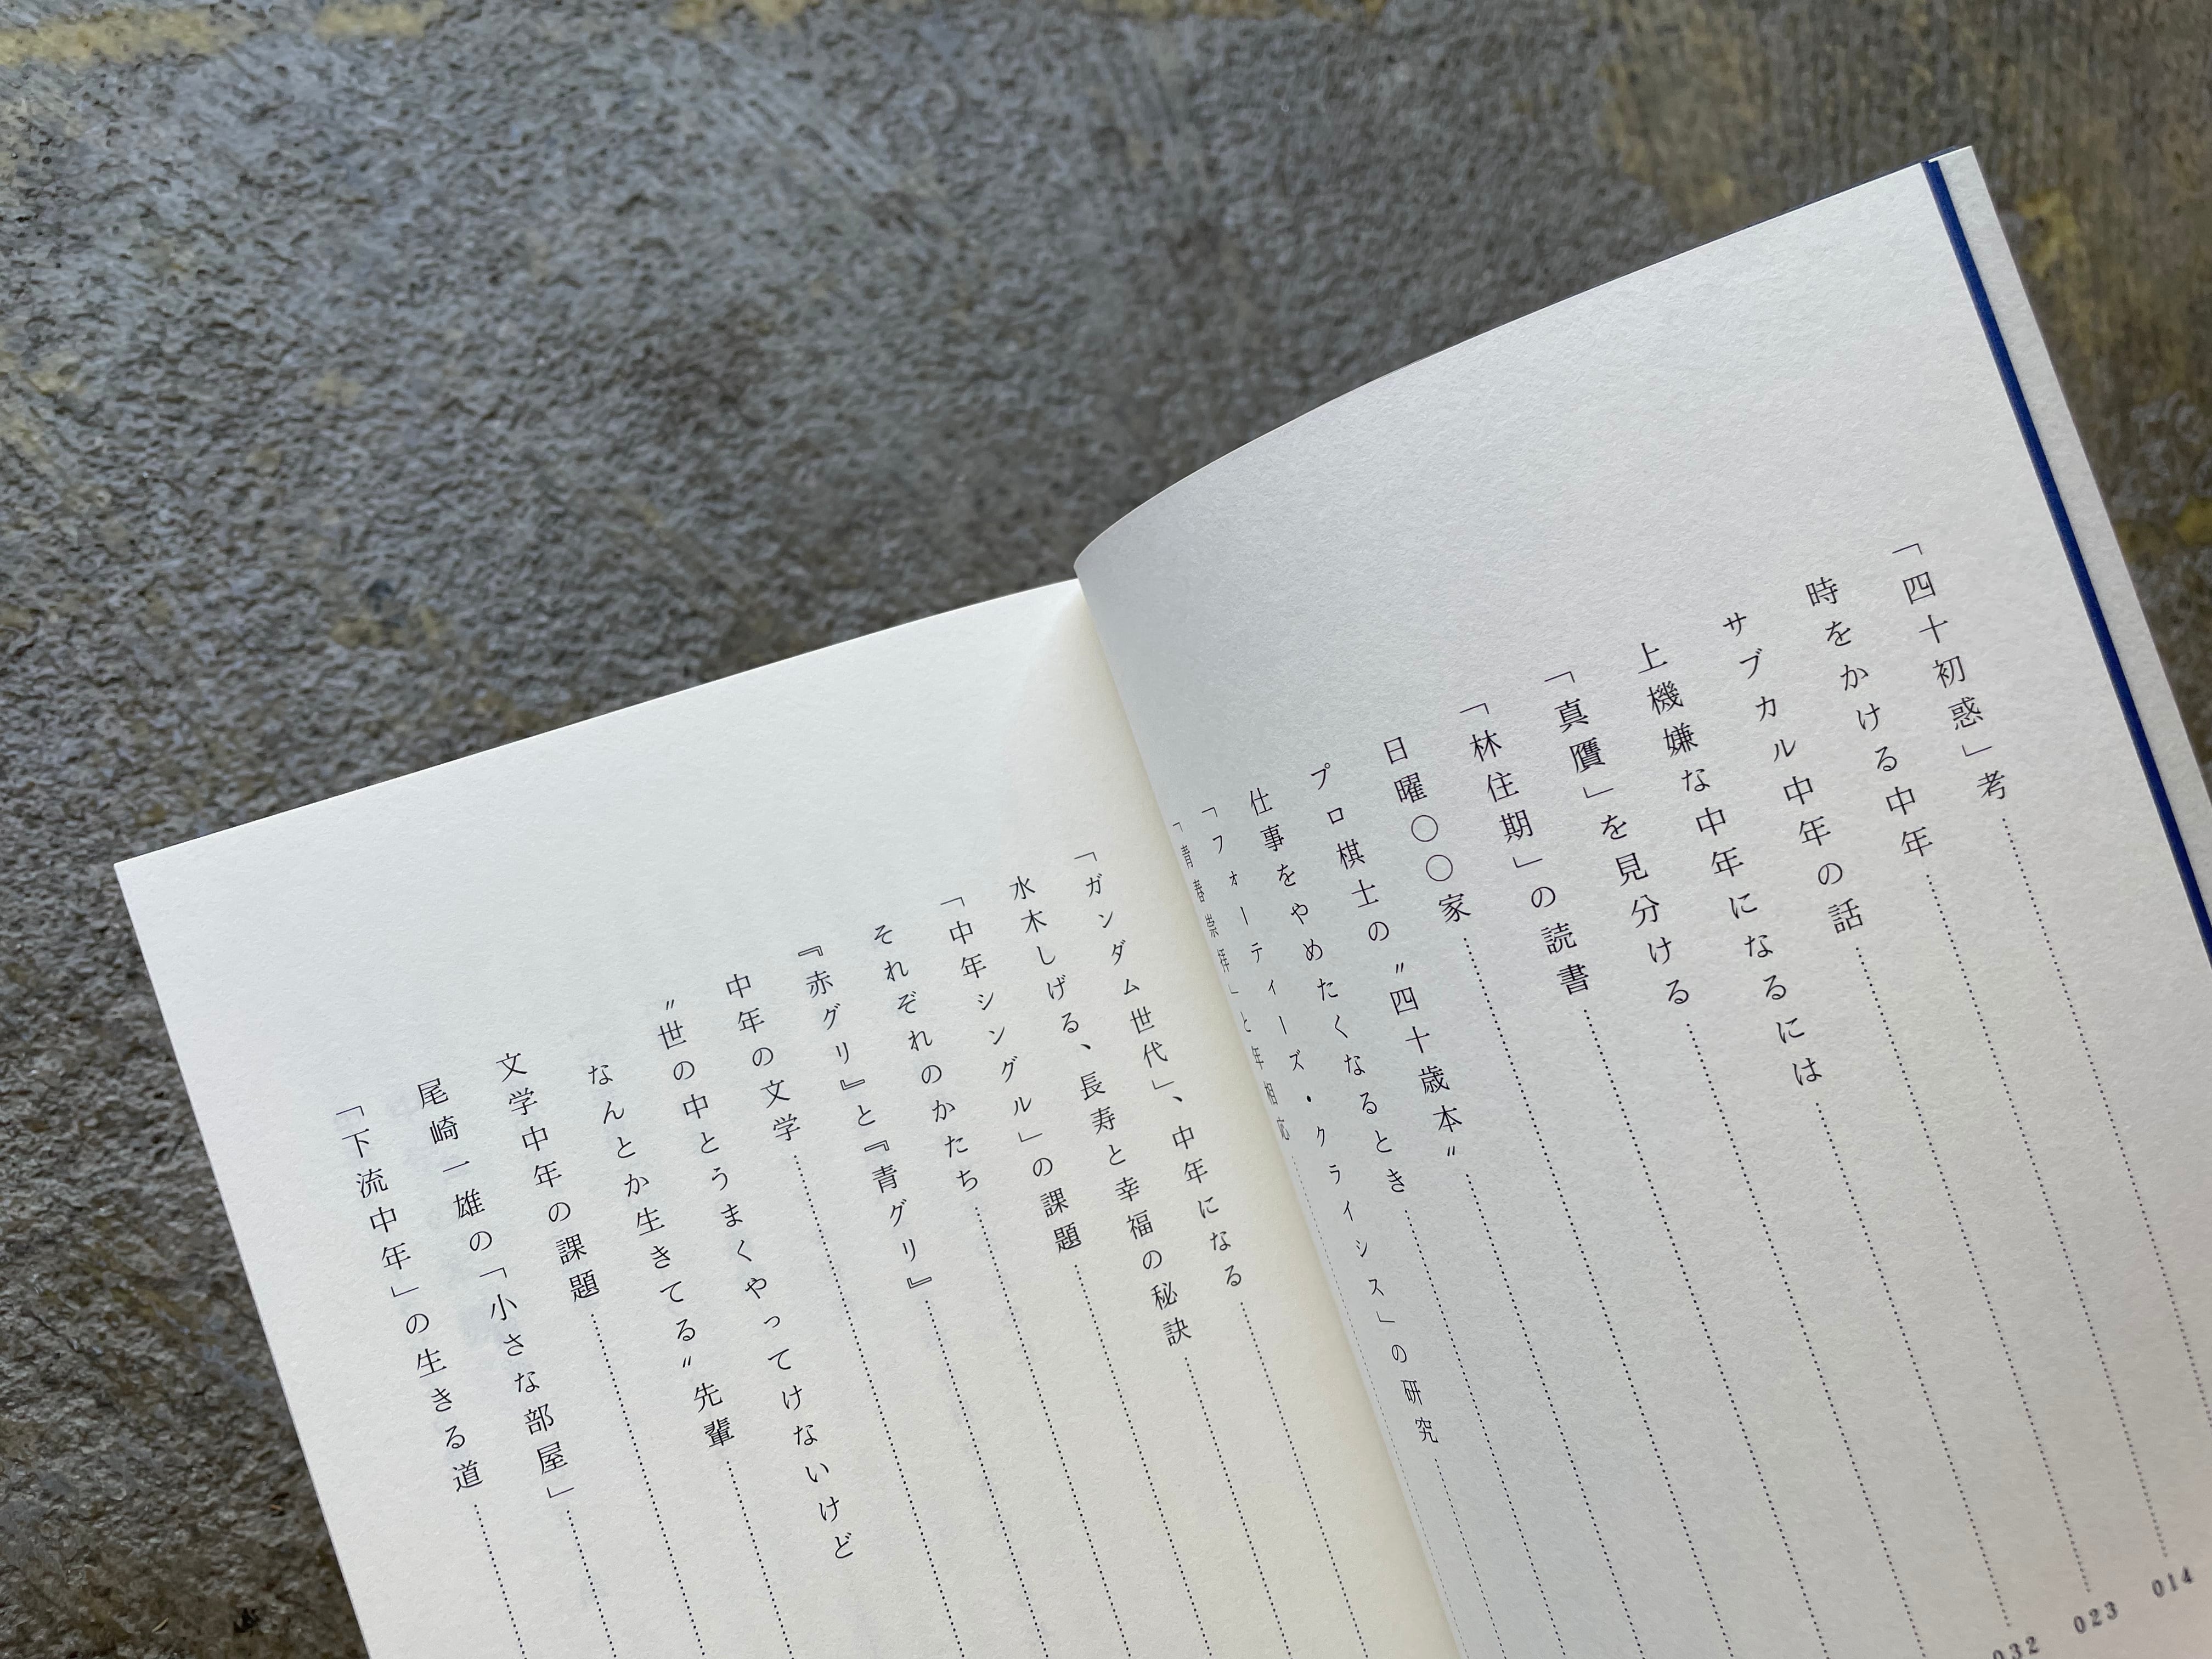 「四十初惑」考 014
時をかける中年 023
サブカル中年の話 032
上機嫌な中年になるには
「真贋」を見分ける
「林住期」の読書
日曜〇〇家
プロ棋士の〝四十歳本〟
仕事をやめたくなるとき
「フォーティーズ・クライシス」の研究
「青春崇拝」と年相応
「ガンダム世代」、中年になる
水木しげる、長寿と幸福の秘訣
「中年シングル」の課題
それぞれのかたち
『赤グリ』と『青グリ』
中年の文学
〝世の中とうまくやってけないけど
なんとか生きてる〟先輩
文学中年の課題
尾崎一雄の「小さな部屋」
「下流中年」の生きる道